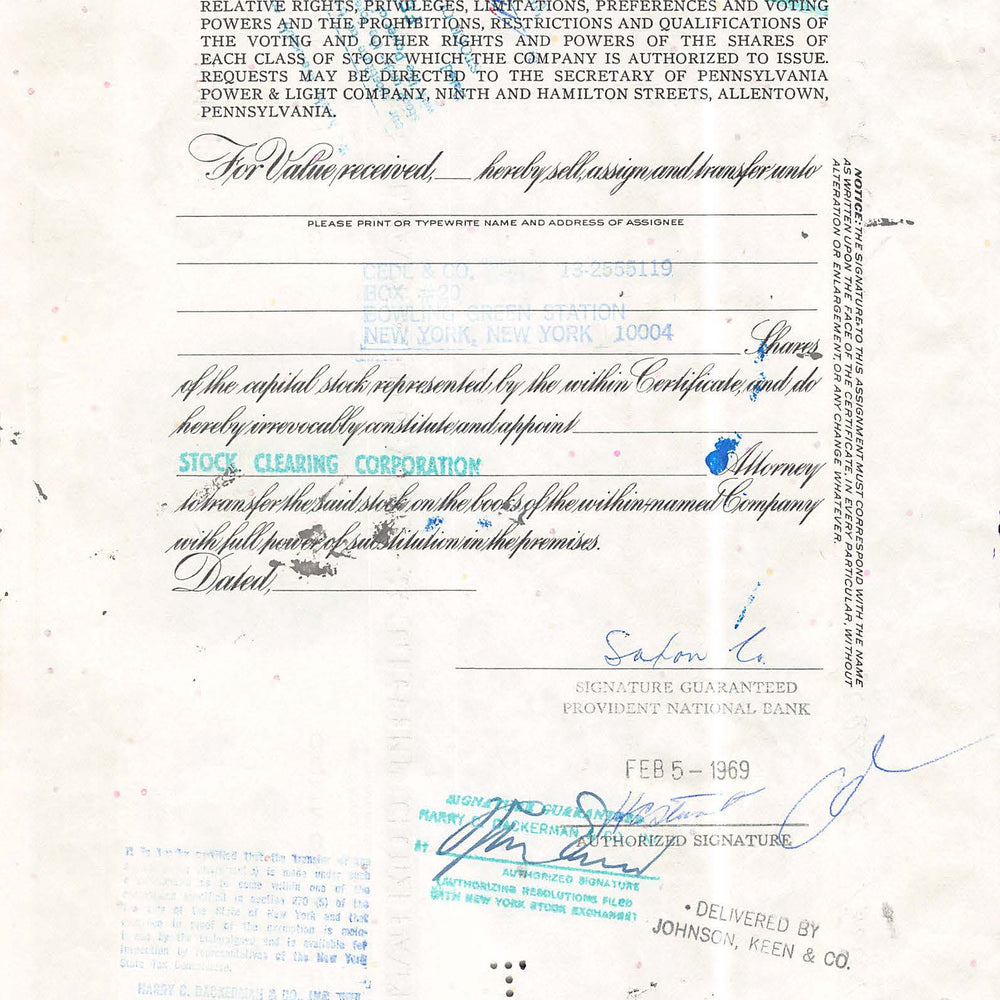 RELATIVE RIGHTS, PRIVILEGES, LIMITATIONS, PREFERENCES AND VOTING
POWERS AND THE PROHIBITIONS, RESTRICTIONS AND QUALIFICATIONS OF
THE VOTING AND OTHER RIGHTS AND POWERS OF THE SHARES OF
EACH CLASS OF STOCK WHICH THE COMPANY IS AUTHORIZED TO ISSUE.
REQUESTS MAY BE DIRECTED TO THE SECRETARY OF PENNSYLVANIA
POWER & LIGHT COMPANY, NINTH AND HAMILTON STREETS, ALLENTOWN,
PENNSYLVANIA.
For Value received, ___ hereby sell, assign and transfer unto
PLEASE PRINT OR TYPEWRITE NAME AND ADDRESS OF ASSIGNEE
CEDE & CO. 13-2555119
BOX #20
BOWLING GREEN STATION
NEW YORK, NEW YORK 10004
Shares
of the capital stock represented by the within Certificate, and do
hereby irrevocably constitute and appoint
STOCK CLEARING CORPORATION Attorney
to transfer the said stock on the books of the within-named Company
with full power of substitution in the premises.
Dated,
NOTICE: THE SIGNATURE TO THIS ASSIGNMENT MUST CORRESPOND WITH THE NAME
AS WRITTEN UPON THE FACE OF THE CERTIFICATE, IN EVERY PARTICULAR, WITHOUT
ALTERATION OR ENLARGEMENT, OR ANY CHANGE WHATEVER.
Saxon Co.
SIGNATURE GUARANTEED
PROVIDENT NATIONAL BANK
FEB 5 - 1969
AUTHORIZED SIGNATURE
SIGNATURE GUARANTEED
HARRY C. DACKERMAN & CO., INC.
BY
AUTHORIZED SIGNATURE
(AUTHORIZING RESOLUTIONS FILED
WITH NEW YORK STOCK EXCHANGE)
• DELIVERED BY
JOHNSON, KEEN & CO.
It is hereby certified that the transfer of the
is made under such
as to come within one of the
specified in section 270 (5) of the
Tax Law of the State of New York and that
in proof of the exemption is
by the undersigned and is available for
inspection by representatives of the New York
State Tax Commission.
HARRY C. DACKERMAN & CO., INC.